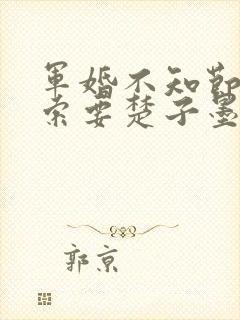 军婚不知节
索要楚子墨
郭京